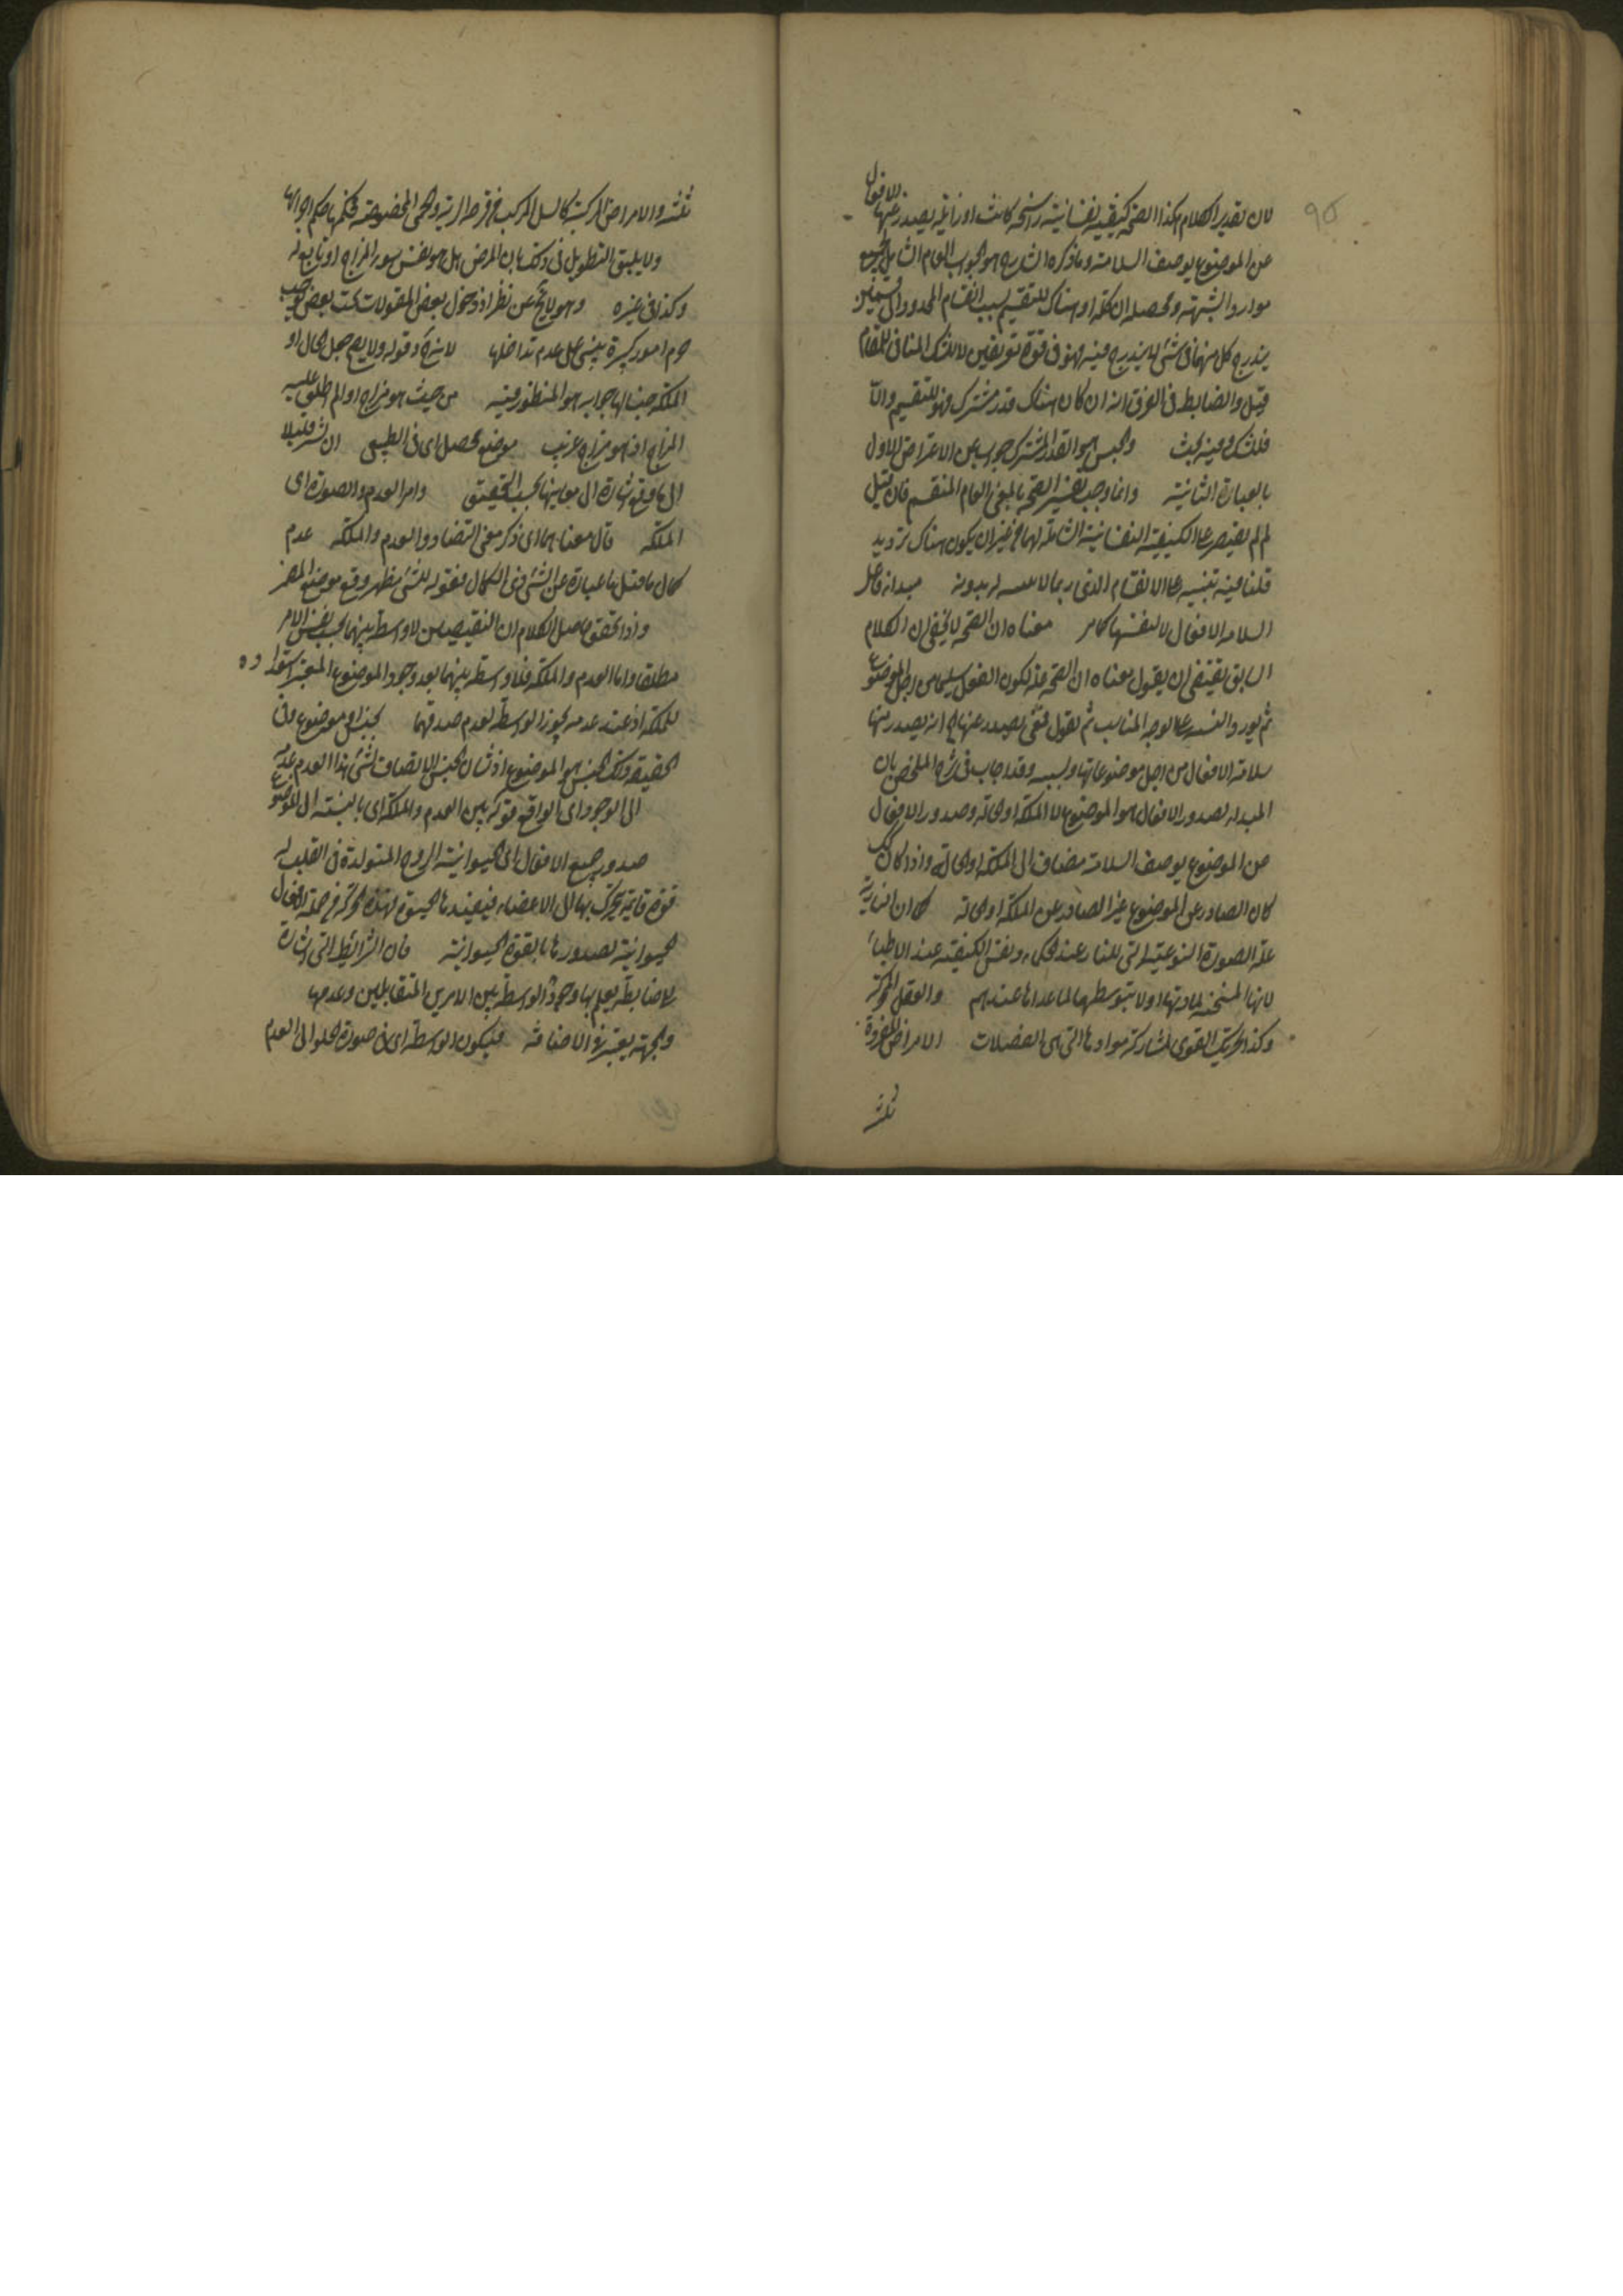 ٩٥
لان تقدير الكلام هكذا الصحة كيفية نفسانية راسخة كانت او زايلة يصدر عنها الافعال
عن الموضوع بوصف السلامة وما ذكره الشارح هو الجواب العام الشامل لجميع
موارد الشبهة ومحصله ان كلمة او هناك للتقسيم بسبب انقسام المحدود الى قسمين
يندرج كل منهما في شئ لا يندرج فيه فهو في قوة تعريفين لا للشك المنافي للمقام
قيل والضابط في الفرق انه ان كان هناك قدر مشترك فهو للتقسيم والا
فللشك وفيه بحث والجنس هو القدر المشترك جواب عن الاعتراض الاول
بالعبارة الثانية وانما وجب تفسير الصحة بالمعنى العام المنقسم فان قيل
لم لم يقتصر على الكيفية النفسانية الشاملة لهما من غير ان يكون هناك ترديد
قلنا فيه تنبيه على الانقسام الذي ربما بدونه
السلامة الافعال لا لنفسها كما مر معناه ان الصحة لا يخفى ان الكلام
السابق يقتضي ان يقول معناه ان الصحة علة لكون الفعل سليما من اجل الموضوع
ثم يورد على الوجه المناسب ثم نقول فمعنى يصدر عنها اه انه يصدر منها
سلامة الافعال من اجل موضوعاتها وبسببه وقد اجاب في شرح الملخص بان
المبدا لصدور الافعال هو الموضوع لا الملكة او الحالة وصدور الافعال
عن الموضوع بوصف السلامة مضاف الى الملكة او الحالة واذا كان كذلك
كان الصادر عن الموضوع غير الصادر عن الملكة او الحالة كما ان النارية
علة الصورة النوعية التي للنار عند الحكماء ونفس الكيفية عند الاطباء
لانها المسخنة لمادتها اولا بتوسطها لما عداها عندهم والعقل المحركة
وكذا تحريك القوى لمشاركة موادها التي هي العضلات الامراض المفردة
ثلثة
ثلثة والامراض المركبة كالسل المركب من قرحة الرية والحمى المخصوصة فحكمها حكم اجزائها
ولا يليق التطويل في ذلك بان المرض هل هو نفس سوء المزاج او تابع له
وكذا في غيره وهو لا يخ عن نظر اذ دخول بعض المقولات تحت بعض يوجب
هدم امور كثيرة يبتني على عدم تداخلها لا يتجزء وقوله ولا يصح جعل الحال او
الملكة جنسا لها جوابه هو المنظور فيه من حيث هو مزاج او الم اطلق عليه
المزاج اذ هو مزاج غريب موضع تحصل اى في الطبيعي ان شر قليلا
الى ما وقع اشارة الى ما بينها بحسب التحقيق وامر العدم والصورة اى
الملكة قال معناهما اى ذكر معنى التضاد والعدم والملكة عدم
كمال ما قيل ما عبارة عن الشئ في الكمال فقوله للشئ مظهر وقع موضع المضمر
واذا تحقق حاصل الكلام ان النقيضين لا واسطة بينهما بحسب نفس الامر
مطلقا واما العدم والملكة فلا واسطة بينهما بعد وجود الموضوع المعتبر استعداده
للملكة اذ عند عدمه يجوز الواسطة لعدم صدقهما بجنس او موضوع وفي
الحقيقة ذلك الجنس هو الموضوع اذ شان الجنس الاتصاف لشئ هذا العدم عدمه
الى الوجود اى الواقع فوته بين العدم والملكة اى بالنسبة الى الموضوع
صدور جميع الافعال اى الحيوانية الروح المتولدة في القلب له
قوة قايمة يتحرك بها الى الاعضاء فيفيدها الحيوة فهذه الحركة من جملة الافعال
الحيوانية لصدورها بالقوة الحيوانية فان الشرائط التي اشارة
لا ضابطة يعلم بها وجود الواسطة بين الامرين المتقابلين وعدمها
والجهة يعتبر في الاضافة فيكون الواسطة اى في صورة الخلو الى العدم